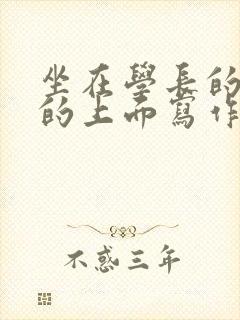 坐在學長的
的上面寫作
不惑三年